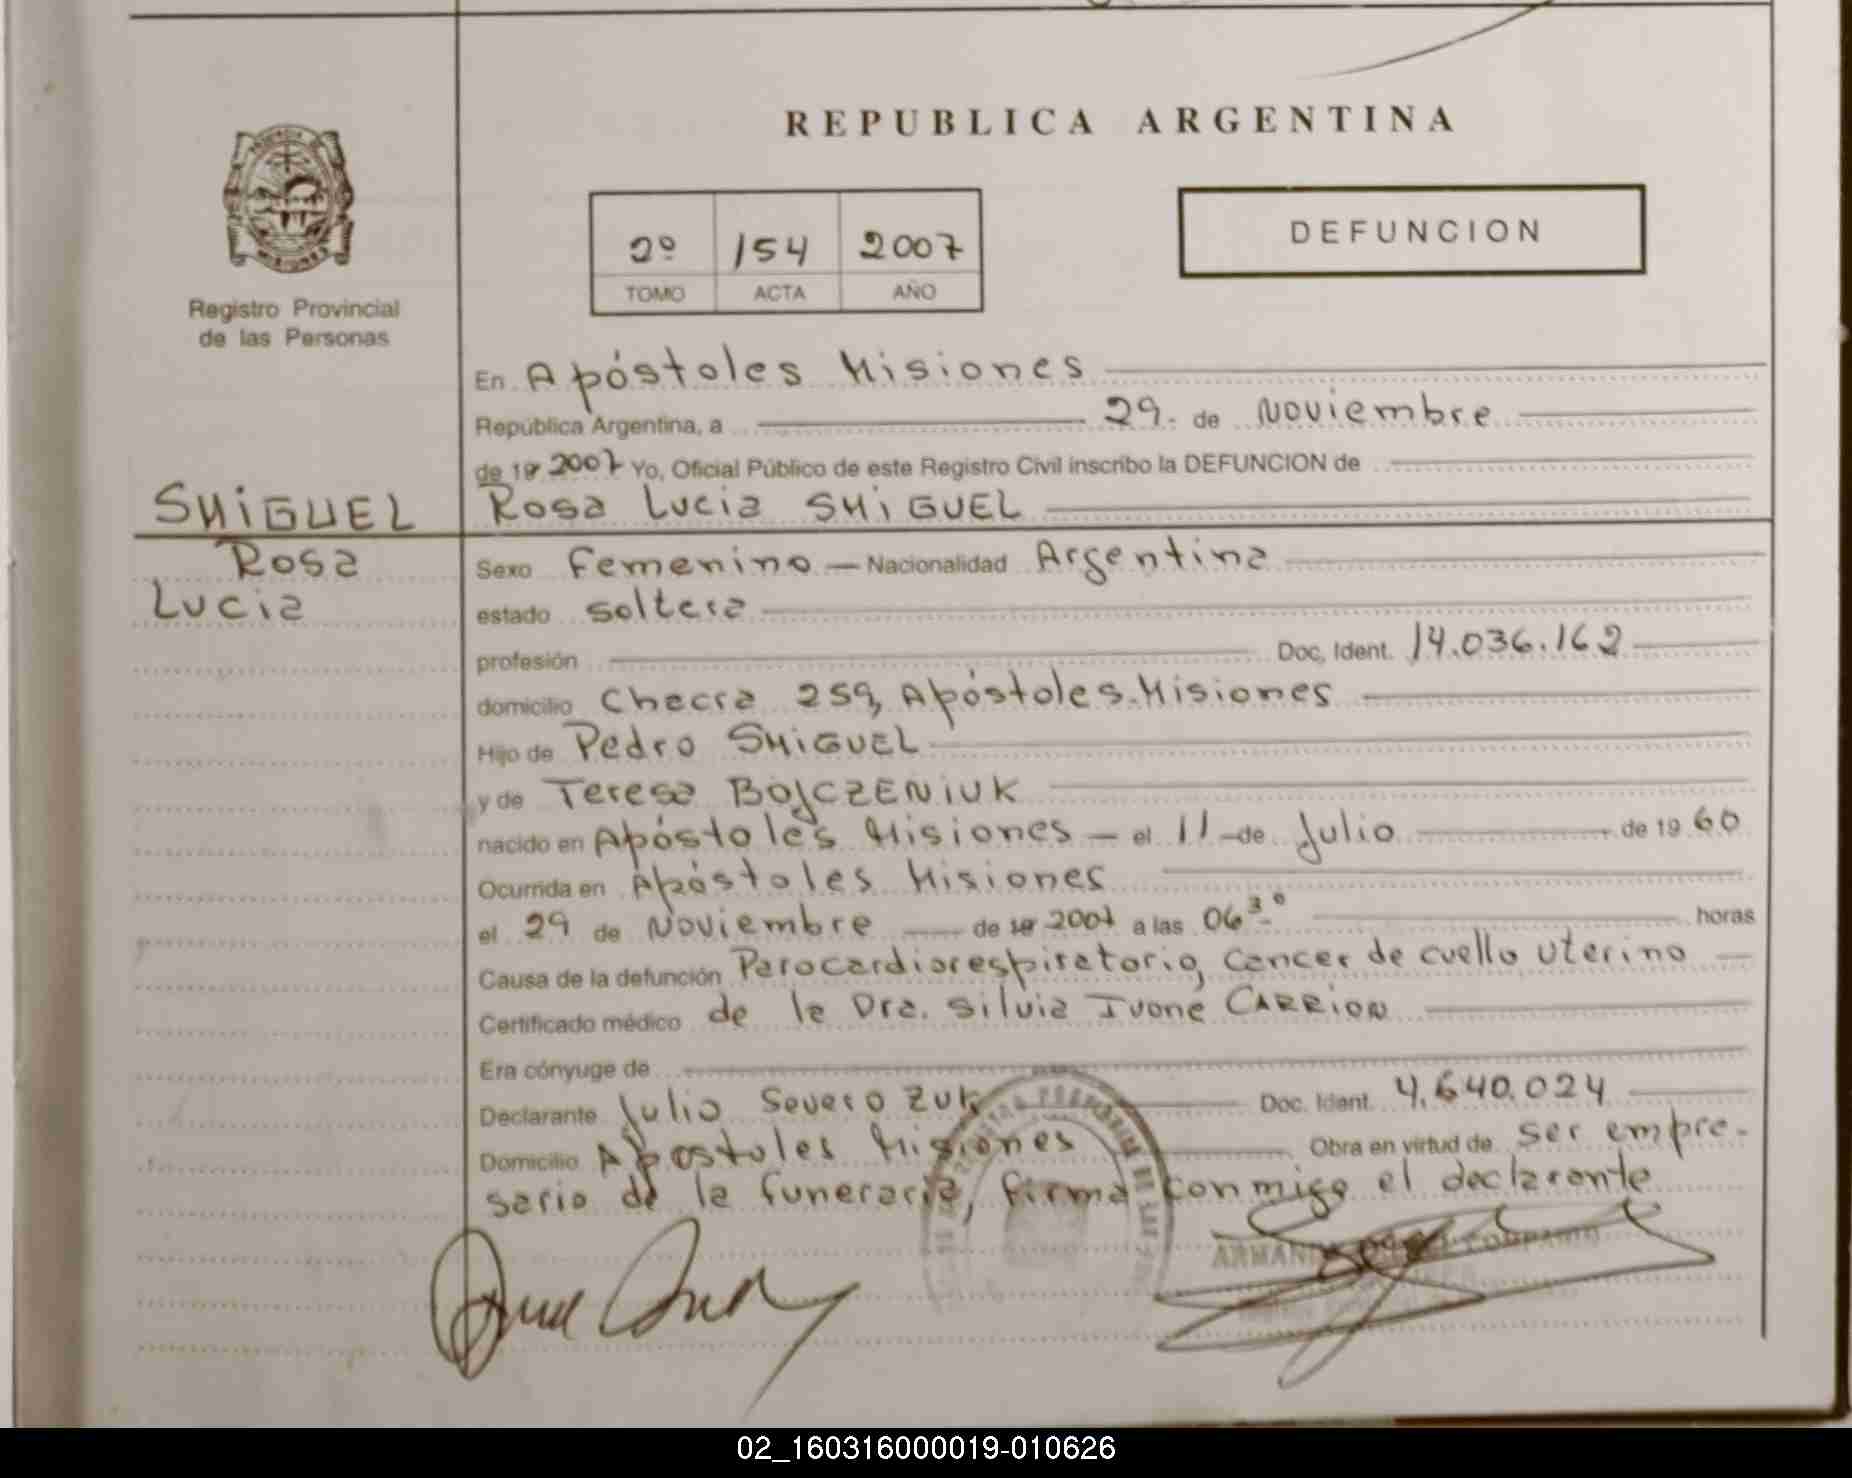 REPUBLICA ARGENTINA
2º 154 2007
TOMO ACTA AÑO
DEFUNCION
Registro Provincial
de las Personas
SMiGUEL
Rosa
Lucia
En Apóstoles Misiones
República Argentina, a 29 de Noviembre
de 19 2007 Yo, Oficial Público de este Registro Civil inscribo la DEFUNCION de
Rosa Lucia SMiGUEL
Sexo Femenino Nacionalidad Argentina
estado soltera
profesión Doc, Ident. 14.036.162
domicilio Chacra 259, Apóstoles-Misiones
Hijo de Pedro SMiGUEL
y de Teresa BOJCZENiUK
nacido en Apóstoles Misiones el 11 de Julio de 19 60
Ocurrida en Apóstoles Misiones
el 29 de Noviembre de 19 2007 a las 06 30 horas
Causa de la defunción Parocardiorespiratorio, cancer de cuello uterino
Certificado médico de la Dra. Silvia Ivone CARRION
Era cónyuge de
Declarante Julio Severo Zuk Doc. Ident. 4.640.024
Domicilio Apostoles Misiones Obra en virtud de ser empre-
sario de la funeraria, firma conmigo el declarante
02_160316000019-010626